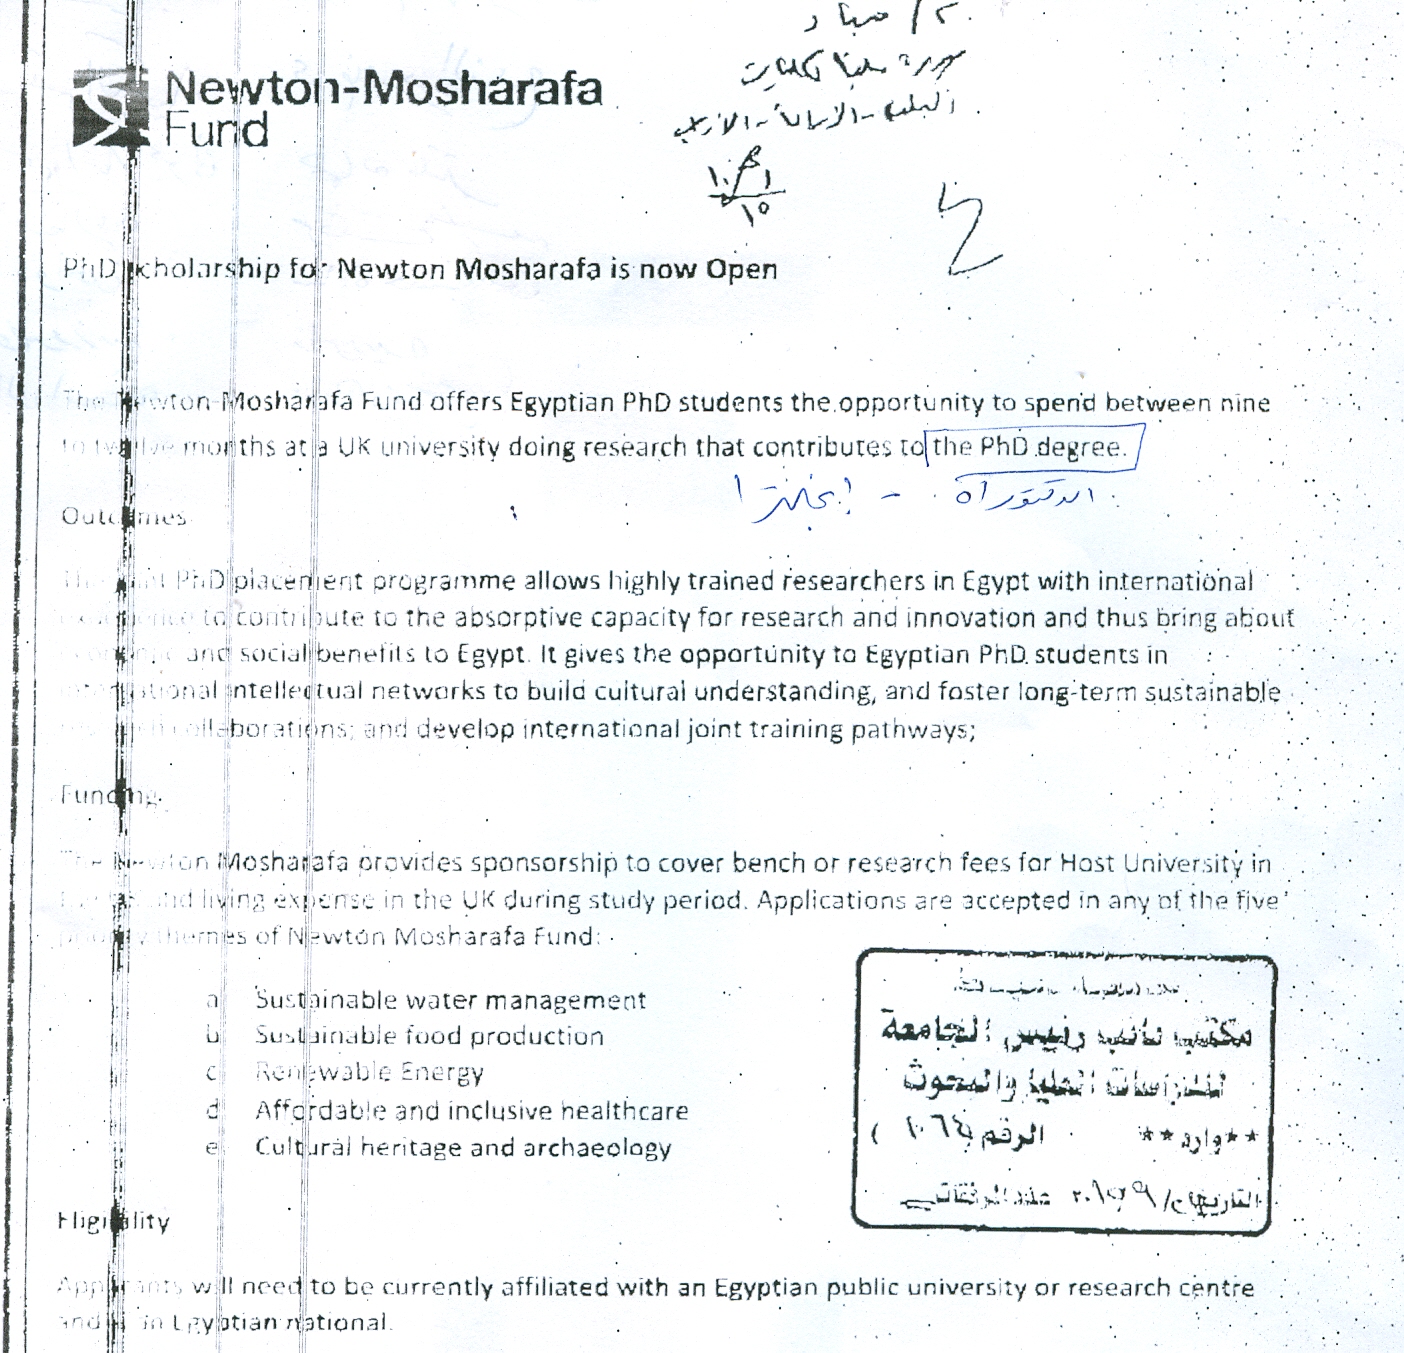 Newton-Mosharafa
Fund
PhD Scholarship for Newton Mosharafa is now Open
The Newton-Mosharafa Fund offers Egyptian PhD students the opportunity to spend between nine
to twelve months at a UK university doing research that contributes to the PhD degree.
الدكتوراة - إنجلترا
Outcomes
The joint PhD placement programme allows highly trained researchers in Egypt with international
experience to contribute to the absorptive capacity for research and innovation and thus bring about
economic and social benefits to Egypt. It gives the opportunity to Egyptian PhD students in
international intellectual networks to build cultural understanding, and foster long-term sustainable
research collaborations; and develop international joint training pathways;
Funding
The Newton Mosharafa provides sponsorship to cover bench or research fees for Host University in
the UK and living expense in the UK during study period. Applications are accepted in any of the five
priority themes of Newton Mosharafa Fund:
a Sustainable water management
b Sustainable food production
c Renewable Energy
d Affordable and inclusive healthcare
e Cultural heritage and archaeology
مكتب نائب رئيس الجامعة
للدراسات العليا والبحوث
**وارد** الرقم
التاريخ عدد المرفقات
Eligibility
Applicants will need to be currently affiliated with an Egyptian public university or research centre
and an Egyptian national.